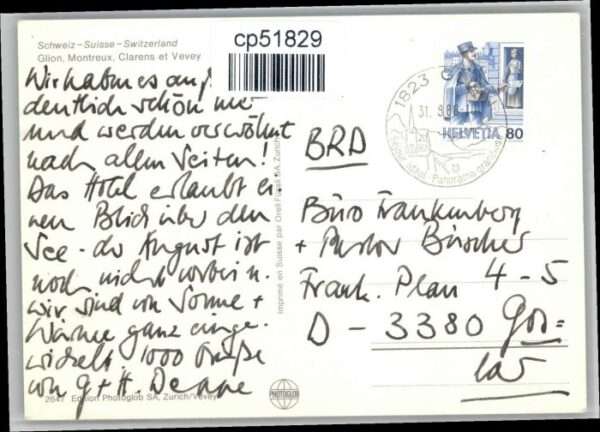 Schweiz – Suisse – Switzerland
Glion, Montreux, Clarens et Vevey
cp51829
Wir haben es
dentlich schön
und werden verwöhnt
nach allen Seiten!
Das Hotel erlaubt ei-
nen Blick über den
See - der August ist
noch nicht vorbei u.
wir sind von Sonne +
Wärme ganz einge-
wickelt 1000 Grüße
von G + H. Deppe
2647 Edition Photoglob SA, Zurich/Vevey
Imprimé en Suisse par Orell Füssli SA, Zurich
PHOTOGLOB
1823
31. 9.
Panorama grandiose
HELVETIA 80
BRD
Büro Frankenberg
+ Pastor Büscher
Frank. Plan 4-5
D - 3380 Gos=
lar